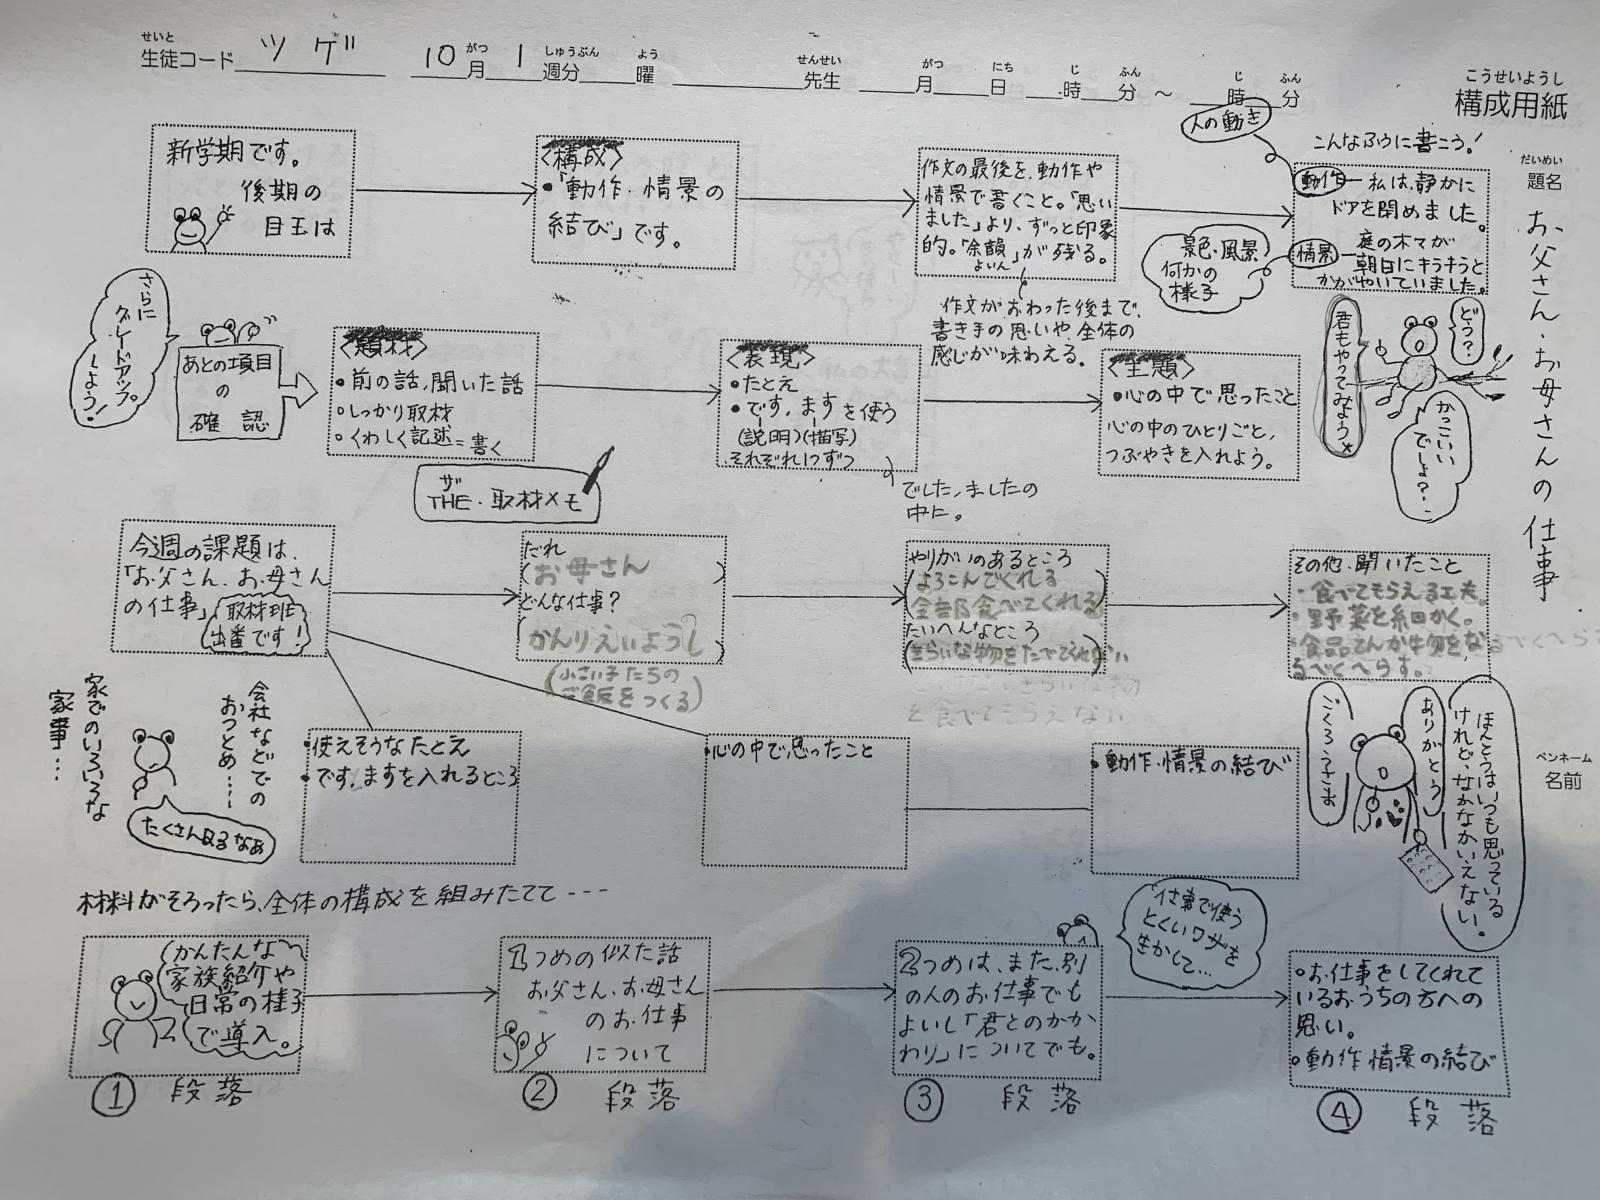 せいと
生徒コード ツゲ 10 がつ 月 1 しゅうぶん 週分 よう 曜 せんせい 先生 がつ 月 にち 日 じ 時 ふん 分 ～ じ 時 ふん 分
こうせいようし
構成用紙
だいめい
題名
お父さん、お母さんの仕事
ペンネーム
名前
新学期です。
後期の
目玉は
〈構成〉
・「動作・情景の
結び」です。
作文の最後を、動作や
情景で書くこと。「思い
ました」より、ずっと印象
的。「余韻」が残る。
よいん
作文がおわった後まで、
書き手の思いや、全体の
感じが味わえる。
こんなふうに書こう！
人の動き
動作－私は、静かに
ドアを閉めました。
情景－庭の木々が
朝日にキラキラと
かがやいていました。
景色・風景
何かの
様子
どう？
君もやってみよう
かっこいい
でしょ？
さらに
グレードアップ
しよう！
あとの項目
の
確認
〈題材〉
・前の話、聞いた話
・しっかり取材
・くわしく記述＝書く
ザ
THE・取材メモ
〈表現〉
・たとえ
・です、ますを使う
(説明)(描写)
それぞれ1つずつ
でした、ましたの
中に。
〈主題〉
・心の中で思ったこと
心の中のひとりごと、
つぶやきを入れよう。
今週の課題は、
「お父さん、お母さん
の仕事」
取材班
出番です！
だれ
(お母さん)
どんな仕事？
(かんりえいようし)
(小さい子たちの
ご飯をつくる)
やりがいのあるところ
(よろこんでくれる
全部食べてくれる)
たいへんなところ
その他、聞いたこと
・食べてもらえる工夫。
・野菜を細かく。
るべくへらす。
会社などでの
おつとめ…
家でのいろいろな
家事…
たくさんあるなぁ
・使えそうなたとえ
・です、ますを入れるところ
・心の中で思ったこと
・動作・情景の結び
ほんとうは、いつも思っている
けれど、なかなかいえない。
ありがとう
ごくろうさま
材料がそろったら、全体の構成を組みたてて---
かんたんな
家族紹介や
日常の様子
で導入。
① 段落
1つめの似た話
お父さん、お母さん
のお仕事
について
② 段落
2つめは、また、別
の人のお仕事でも
よいし「君とのかか
わり」についてでも。
③ 段落
仕事で使う
とくいワザを
生かして…
・お仕事をしてくれて
いるおうちの方への
思い。
・動作・情景の結び
④ 段落